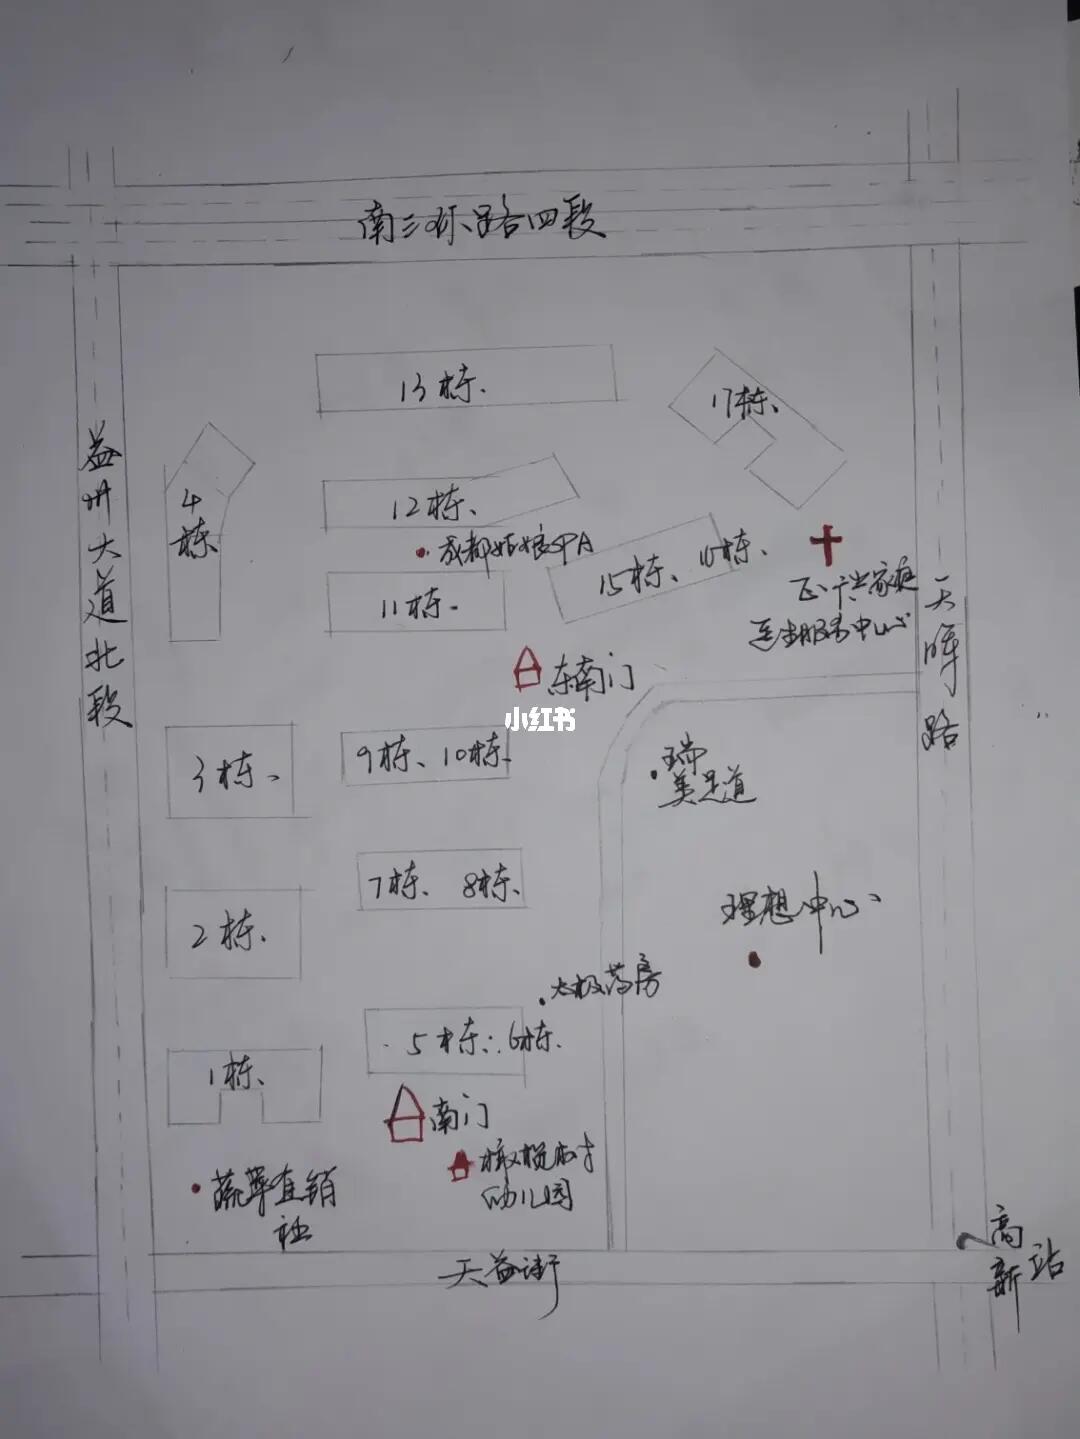 南三环路四段
13栋.
17栋、
益州大道北段
4栋
12栋、
成都姑娘SPA
15栋、
16栋、
11栋.
家庭
服务中心
天晖路
东南门
小红书
3栋、
9栋、10栋.
瑞
美足道
7栋、8栋、
2栋.
理想中心
太极药房
5栋:6栋.
1栋、
南门
橄榄树
幼儿园
蔬菜直销
社
高新站
天益街